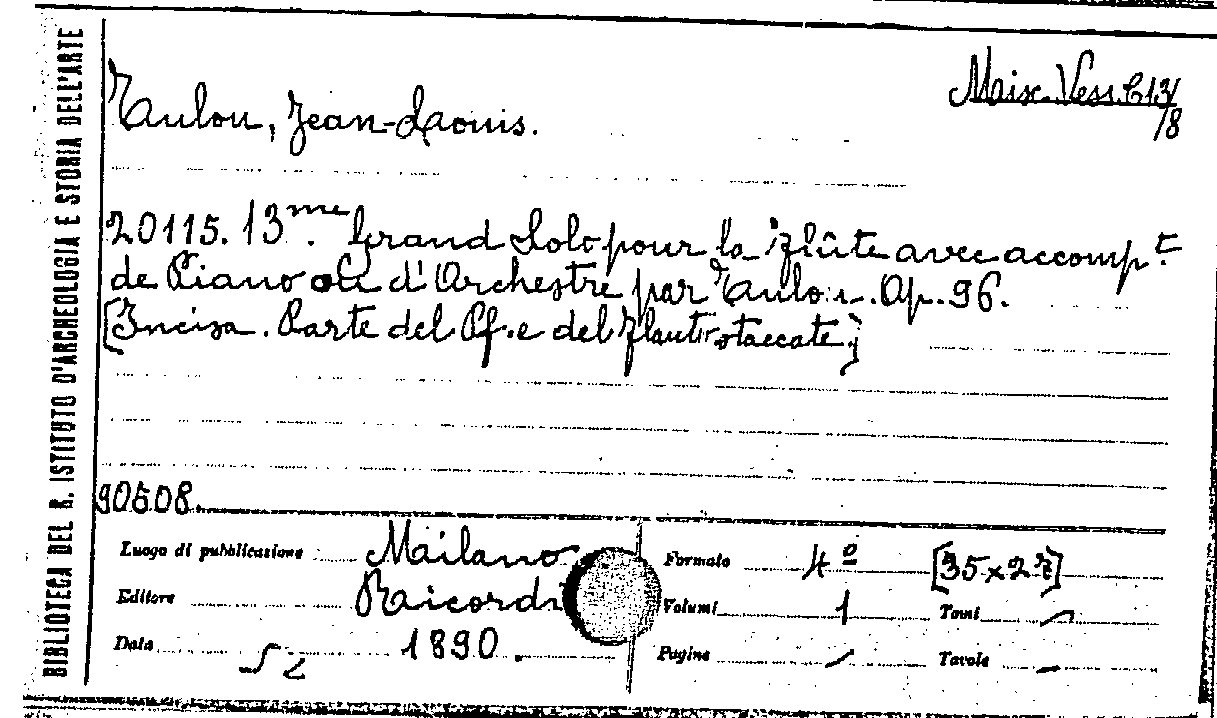 BIBLIOTECA DEL R. ISTITUTO D'ARCHEOLOGIA E STORIA DELL'ARTE
Tulou, Jean-Louis.
Misc. Vess. C 13/
/8
20115. 13.me Grand Solo pour la flûte avec accomp.t
de Piano ou d'Orchestre par Tulou. Op. 96.
[Incisa. Parte del Pf. e del flauto staccate]
90508.
Luogo di pubblicazione Milano Formato 4º [35x27]
Editore Ricordi Volumi 1 Tomi
Data 1890. Pagine Tavole